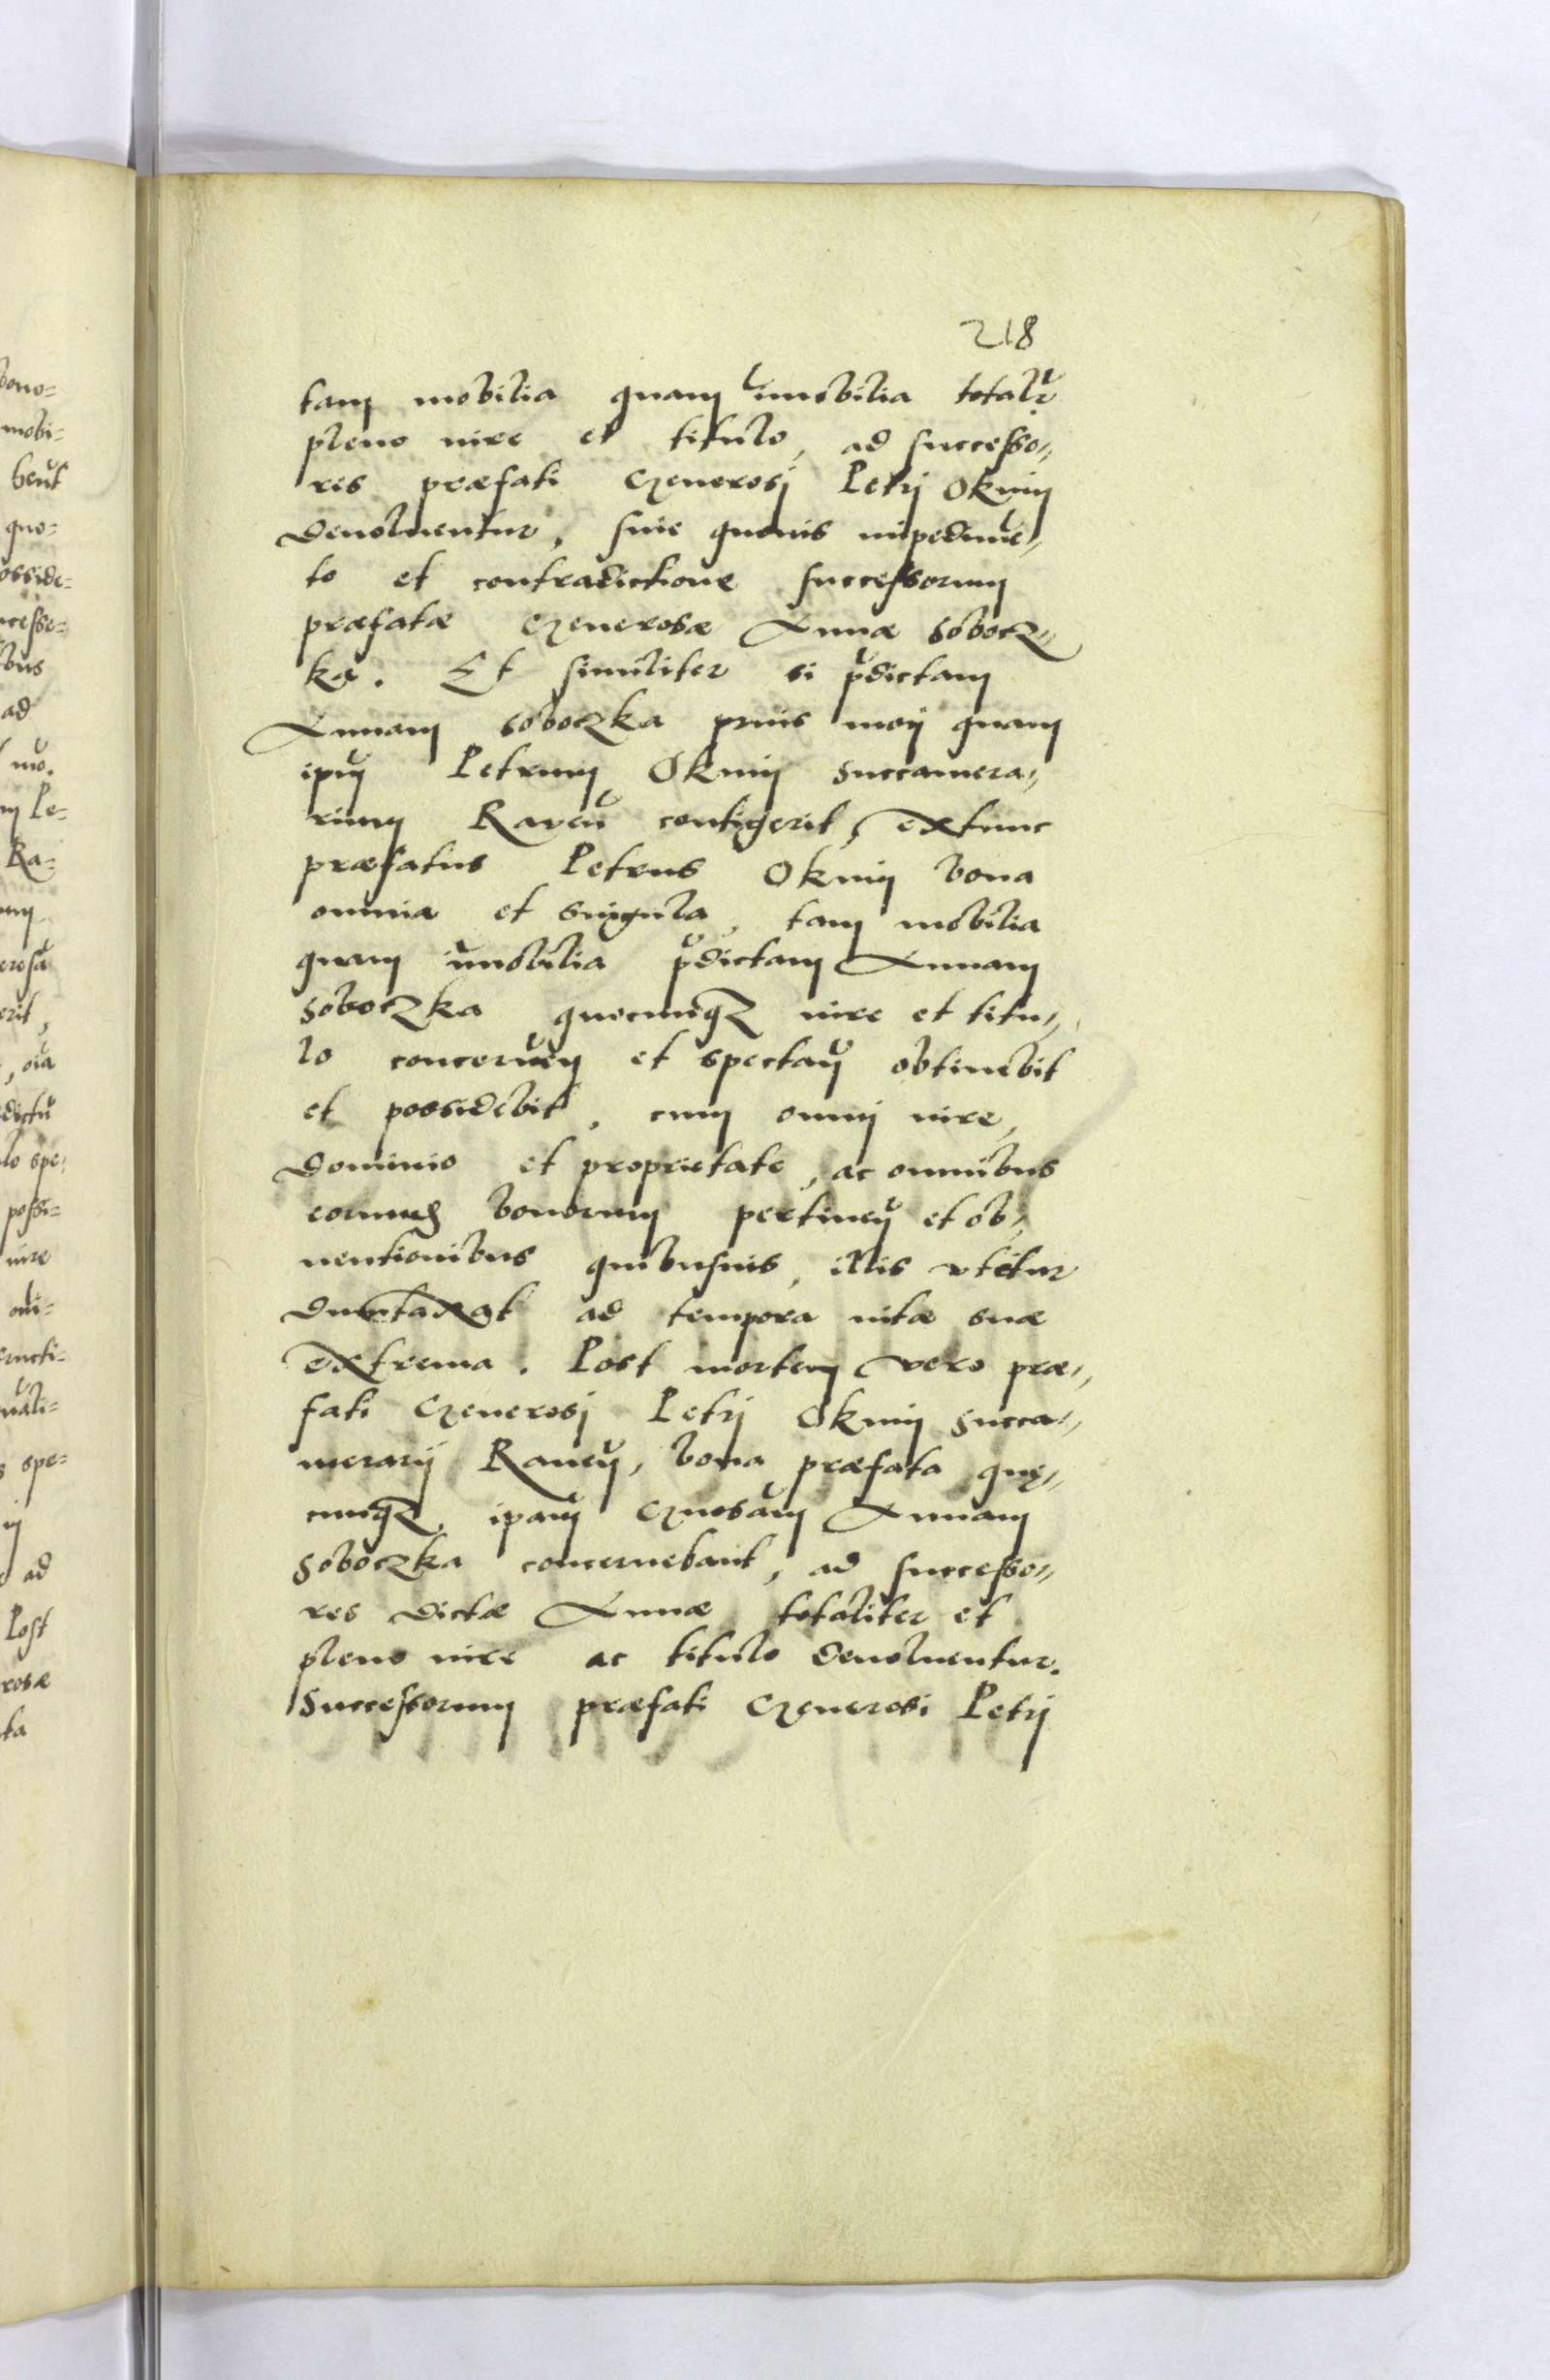 218
tam mobilia quam im̃obilia totalr̃
pleno iure et titulo, ad successo-
res præfati Generosj Petrj Okunij
deuoluentur, sine quouis impedimẽ-
to et contradictione successorum
præfatæ Generosæ Annæ Sobocz-
ka. Et similiter si p̃dictam
Annam Soboczka prius morj quam
ip̃m Petrum Okunij Succamera-
rium Raveñ contigerit, extunc
præfatus Petrus Okunij bona
omnia et singula, tam mobilia
quam im̃obilia p̃dictam Annam
Soboczka quocunqz iure et titu-
lo concerneñ et spectañ obtinebit
et possidebit, cum omnj iure,
Dominio et proprietate, ac omnibus
eorundem bonorum pertineñ et ob-
uentionibus quibusuis, illis vtetur
duntaxat ad tempora vitæ suæ
extrema. Post mortem vero præ-
fati Generosj Petrj Okunij Succa-
merarij Raveñ, bona præfata quę-
cunqz, ip̃am Gnosãm Annam
Soboczka concernebant, ad successo-
res dictæ Annæ totaliter et
pleno iure ac titulo deuoluentur.
Successorum præfati Generosi Petrj
bono=
mobi=
hẽnt
quo=
osside=
ccesso=
bus
ad
mo.
m Pe=
Ra=
erosã
erit,
, oĩa
dictũ
lo spe,
possi=
iure
oñi=
s spe=
ij
ad
Post
rosæ
ta